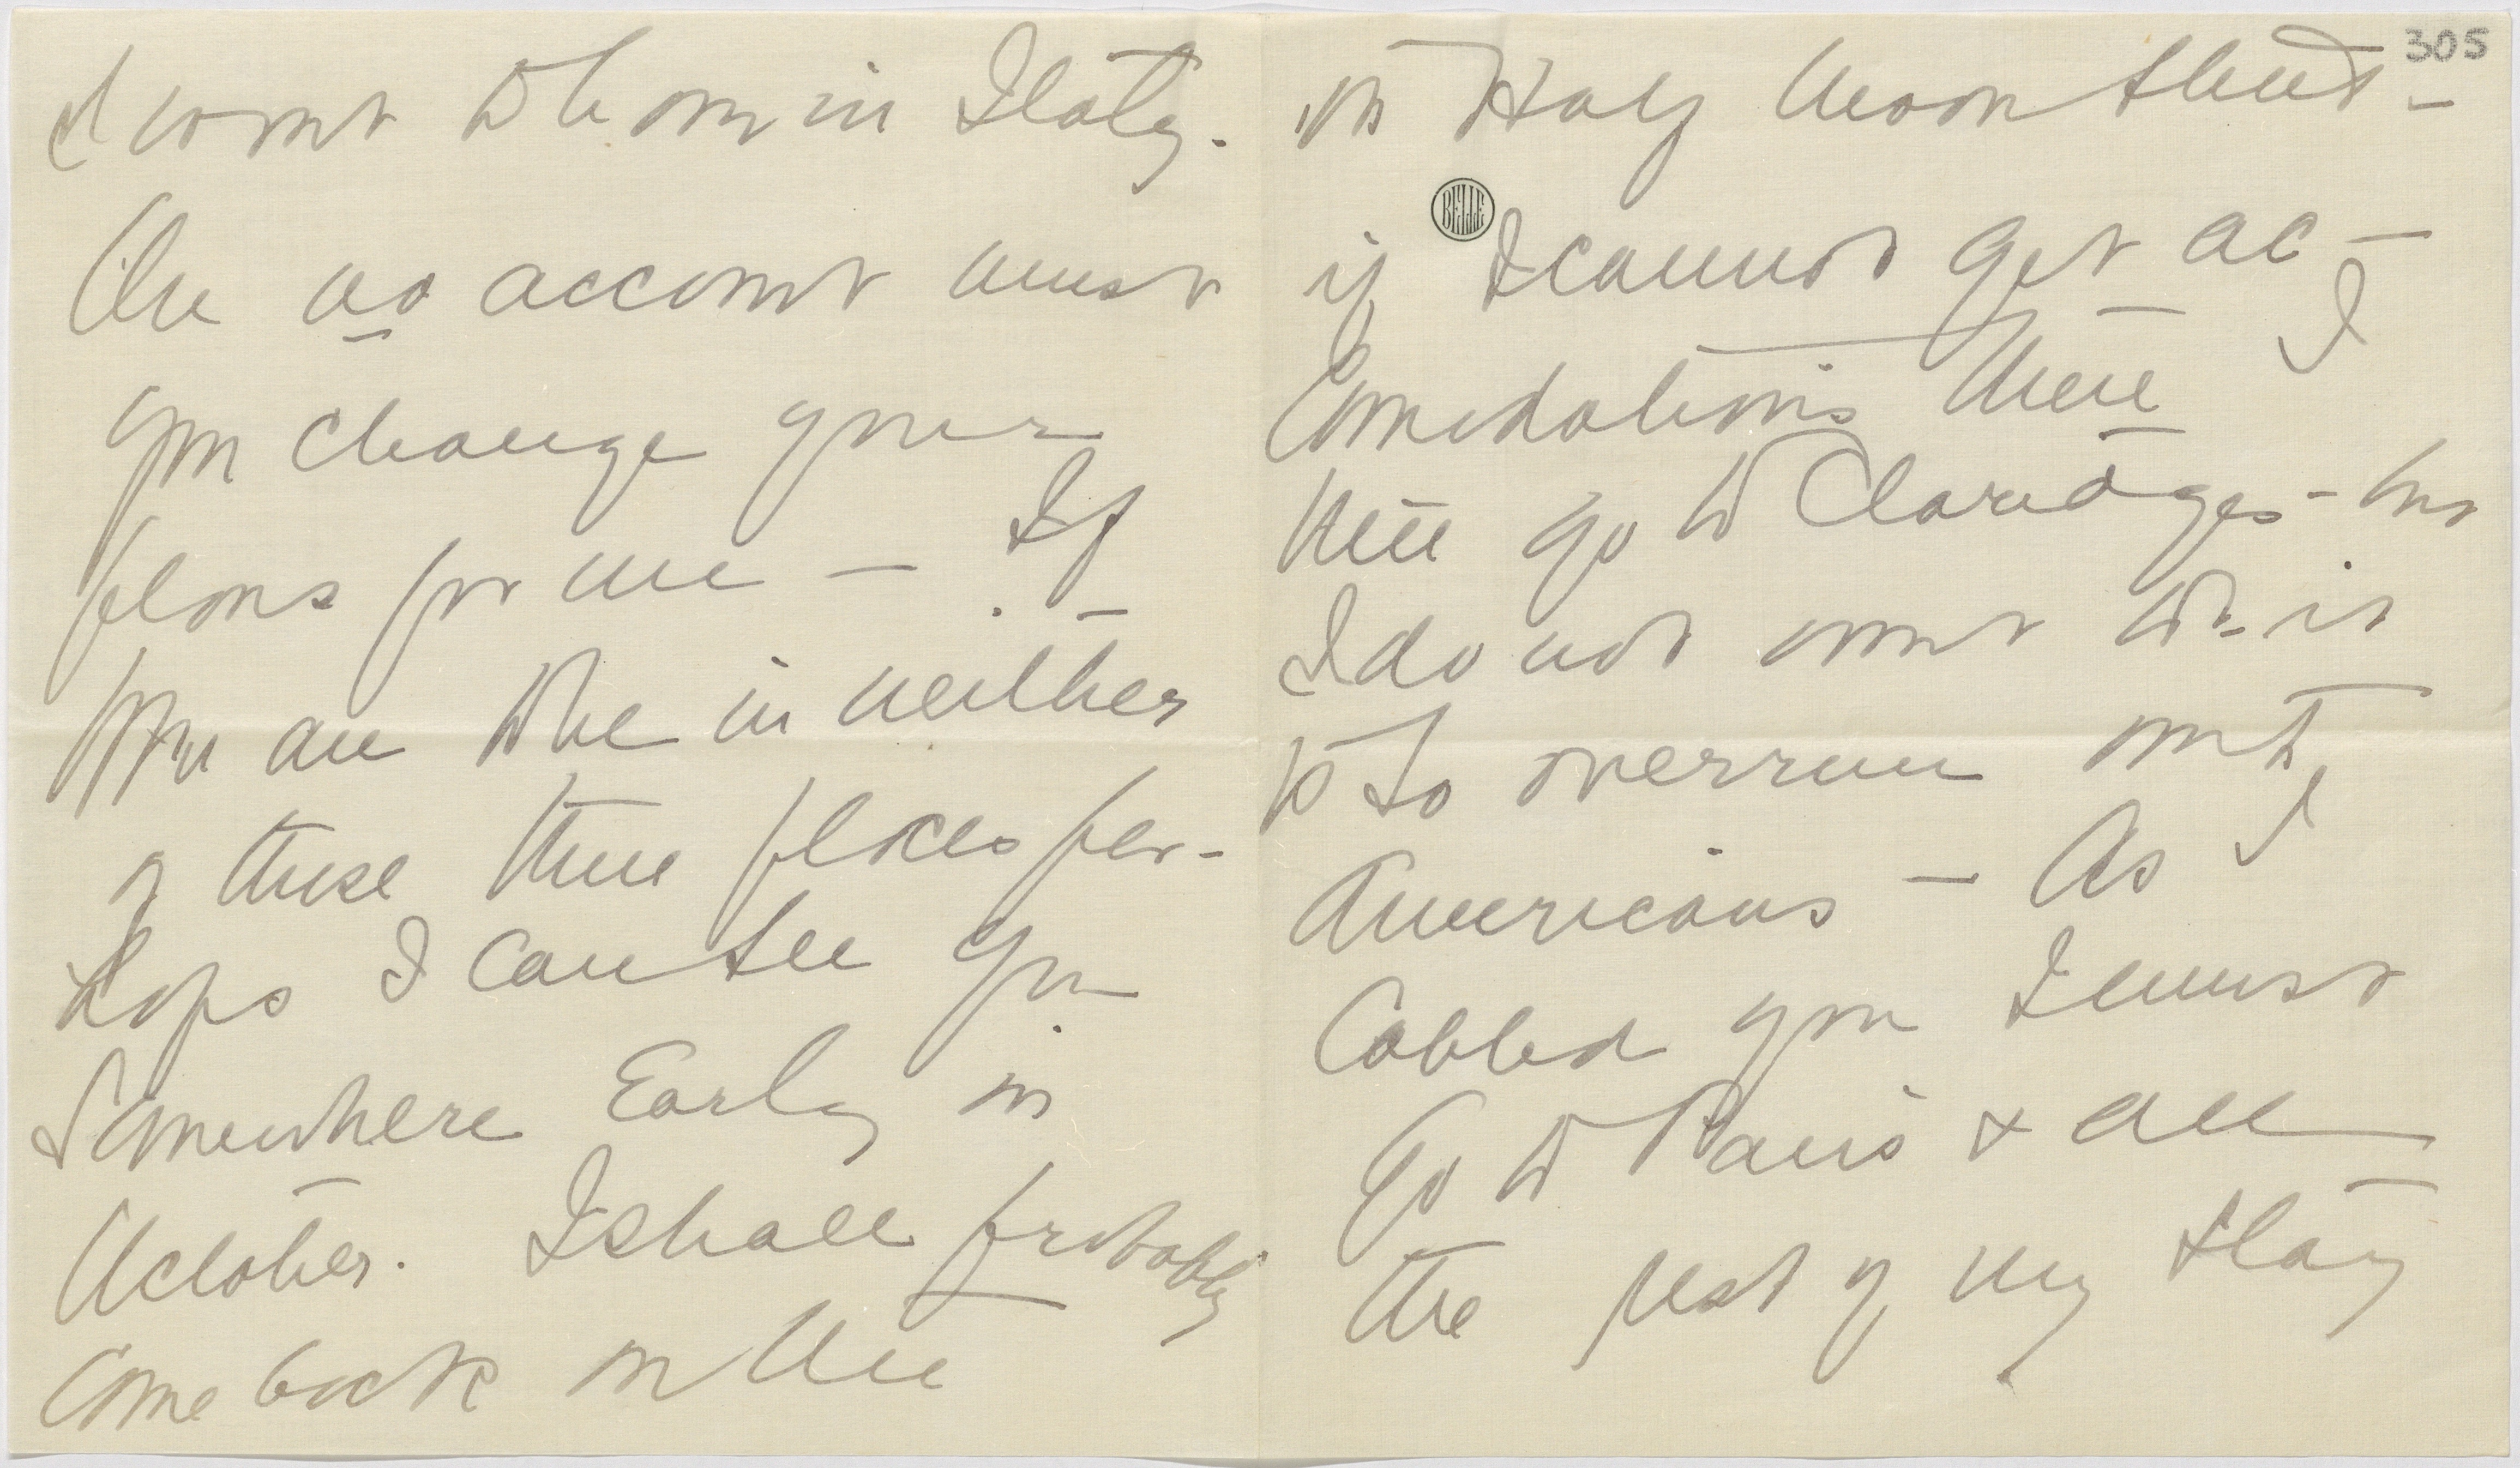 I want to be in Italy.
On no account must
you change your
plans for me — If
you are to be in neither
of these three places per-
haps I can see you
Somewhere Early in
October. I shall probably
Come back on the
305
in Half Moon Street -
BELLE
if I cannot get ac-
comodations there I
will go to Claridges - but
I do not want to - it
is so overrun with
Americans — As I
Cabled you I must
go to Paris & all
the rest of my stay